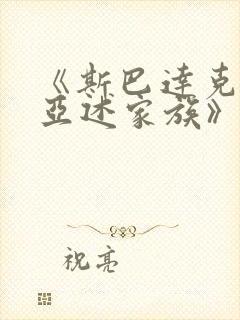 《斯巴达克
亚述家族》
祝亮